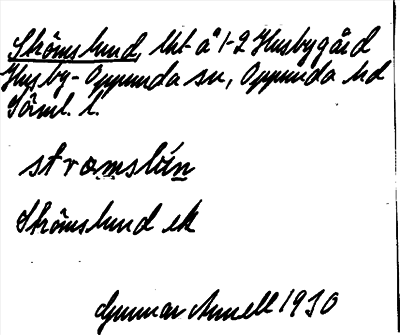 Strömslund, lht å 1-2 Husbygård
Husby-Oppunda sn, Oppunda hd
Söml. l.
stromslun
Strömslund ek
Gunnar Amell 1930